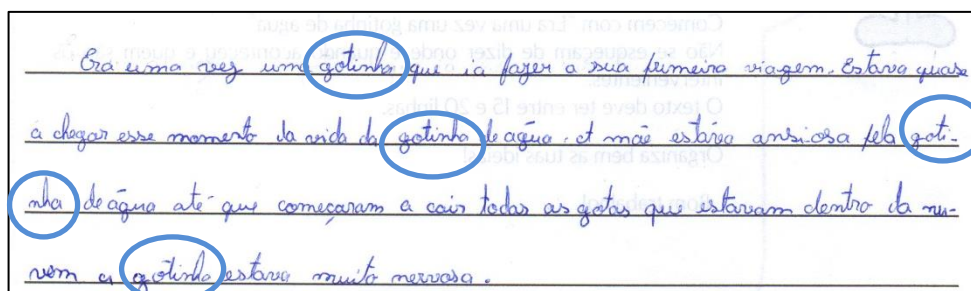 Era uma vez um gotinha que ia fazer a sua primeira viagem. Estava quase
a chegar esse momento da vida da gotinha de água. A mãe estava ansiosa pela goti-
nha de água até que começaram a cair todas as gotas que estavam dentro da nu-
vem a gotinha estava muito nervosa.